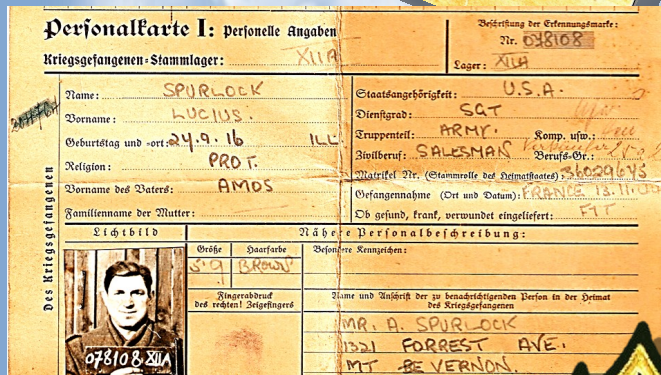 Personalkarte I: Personelle Angaben
Kriegsgefangenen-Stammlager: XIIA
Beschriftung der Erkennungsmarke:
Nr. 078108
Lager: XIIA
Des Kriegsgefangenen
Name: SPURLOCK
Vorname: LUCIUS.
Geburtstag und -ort: 24.9.16 ILL
Religion: PROT.
Vorname des Vaters: AMOS
Familienname der Mutter:
Staatsangehörigkeit: U.S.A.
Dienstgrad: SGT
Truppenteil: ARMY. Komp. usw.:
Zivilberuf: SALESMAN Berufs-Gr.:
Matrikel Nr. (Stammrolle des Heimatstaates): 36029643
Gefangennahme (Ort und Datum): FRANCE 13.11.
Ob gesund, krank, verwundet eingeliefert: FIT
Lichtbild
Nähere Personalbeschreibung:
Größe Haarfarbe Besondere Kennzeichen:
5'9 BROWN
Fingerabdruck
des rechten! Zeigefingers
Name und Anschrift der zu benachrichtigenden Person in der Heimat
des Kriegsgefangenen
078108 XIIA
MR. A. SPURLOCK
1321 FORREST AVE.
MT VERNON.